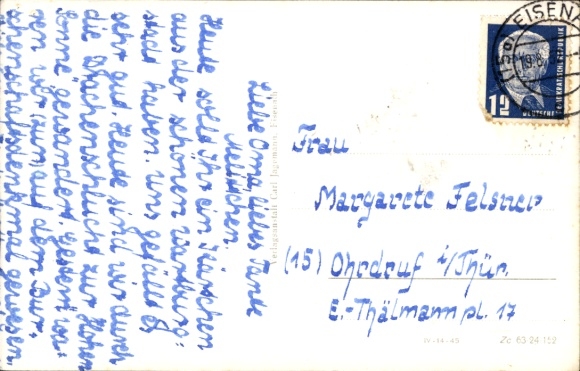 Liebe Oma, liebe Tante
Mellichen.
Heute sollt ihr ein Kärtchen
aus der schönen Wartburg-
stadt haben. Uns gefällt es
sehr gut. Heute sind wir durch
die Drachenschlucht zur Hohen
Sonne gewandert. Gestern wa-
ren wir (nur) auf dem Bur-
schenschaftsdenkmal gewesen.
Verlagsanstalt Carl Jagemann, Eisenach
(15a) EISENA
19.8.
12
DEUTSCHE
DEMOKRATISCHE REPUBLIK
Frau
Margarete Felsner
(15) Ohrdruf i/Thür.
E.-Thälmannpl. 17
IV-14-45 Zc 63 24 152